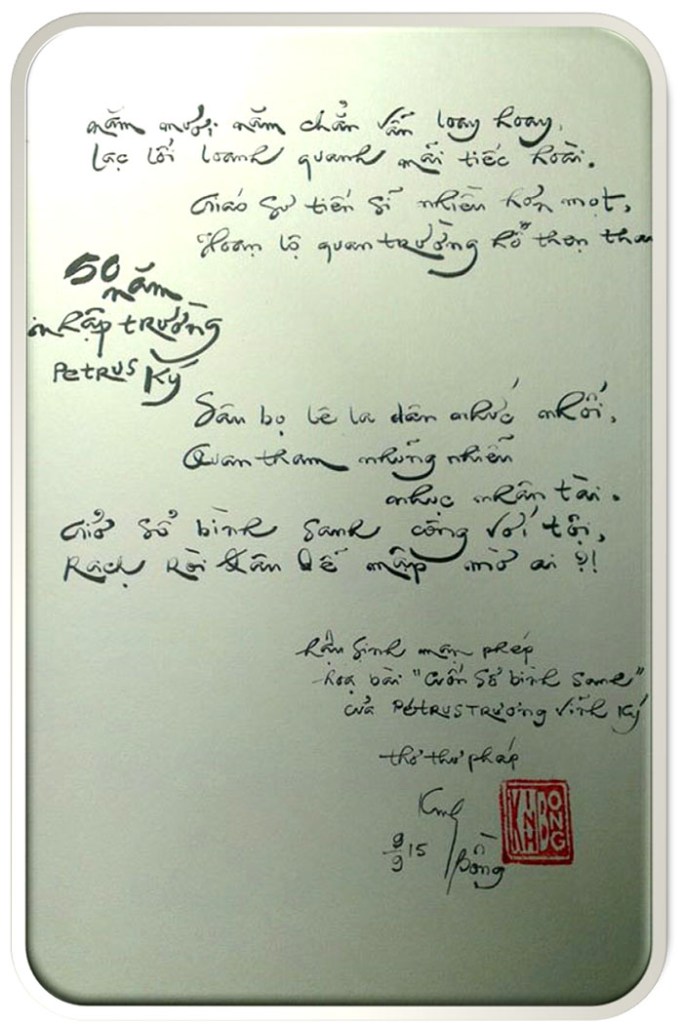 năm mươi năm chẵn vẫn loay hoay,
Lạc lối loanh quanh mãi tiếc hoài.
Giáo sư tiến sĩ nhiều hơn mọt,
Hoạn lộ quan trường hổ thẹn thay
50 năm
nhập trường
PETRUS Ký
Sâu bọ lê la dân nhức nhối,
Quan tham nhũng nhiễu
nhục nhân tài.
Giở sổ bình sanh công với tội,
Rạch ròi hậu thế mập mờ ai ?!
hậu sinh mạn phép
hoạ bài "Cuốn sổ bình sanh"
của PETRUS TRương Vĩnh Ký
thơ thư pháp
9/9 15
Bồng
KINH BONG